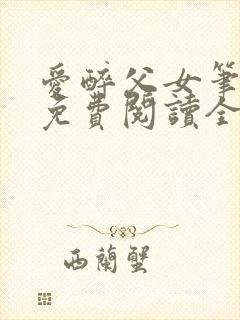 愛醉父女筆
免費閱讀全
西蘭蟹